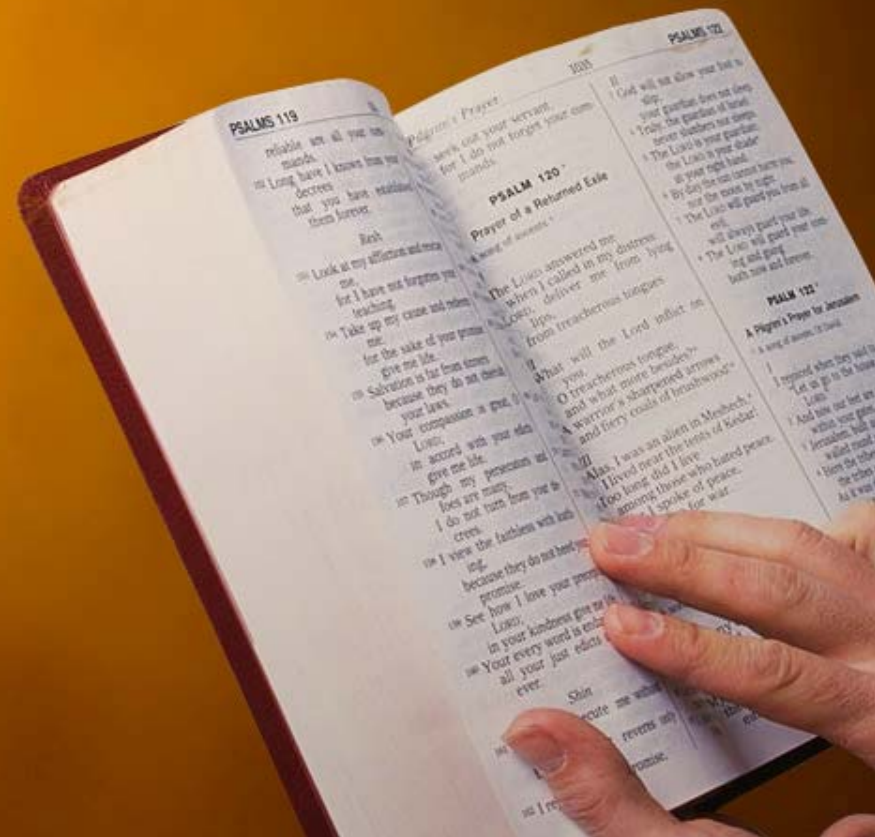 PSALMS 119
reliable are all your com-
mands.
152 Long have I known from your
decrees
that you have established
them forever.
Resh
153 Look at my affliction and rescue
me,
for I have not forgotten your
teaching.
154 Take up my cause and redeem
me;
for the sake of your promise
give me life.
155 Salvation is far from sinners
because they do not cherish
your laws.
156 Your compassion is great, O
LORD;
in accord with your edicts
give me life.
157 Though my persecutors and
foes are many,
I do not turn from your de-
crees.
158 I view the faithless with loath-
ing,
because they do not heed your
promise.
159 See how I love your precepts,
LORD;
in your kindness give me life.
160 Your every word is enduring;
all your just edicts
ever.
Shin
me without
reveres only
promise.
162 I
1035
PSALMS 122
Pilgrim's Prayer
seek out your servant,
for I do not forget your com-
mands.
PSALM 120*
Prayer of a Returned Exile
A song of ascents.
The LORD answered me
when I called in my distress:
LORD, deliver me from lying
lips,
from treacherous tongues.
II
What will the Lord inflict on
you,
O treacherous tongue,
and what more besides?
A warrior's sharpened arrows
and fiery coals of brushwood!
III
Alas, I was an alien in Meshech,
I lived near the tents of Kedar!
Too long did I live
among those who hated peace.
I spoke of peace,
for war.
II
3 God will not allow your foot to
slip;
your guardian does not sleep.
4 Truly, the guardian of Israel
never slumbers nor sleeps.
5 The LORD is your guardian;
the LORD is your shade
at your right hand.
6 By day the sun cannot harm you,
nor the moon by night.
7 The LORD will guard you from all
evil,
will always guard your life.
8 The LORD will guard your com-
ing and going
both now and forever.
PSALM 122*
A Pilgrim's Prayer for Jerusalem
1 A song of ascents. Of David.
I rejoiced when they said to
"Let us go to the house
LORD."
2 And now our feet are
within your gates,
3 Jerusalem, built
walled round
4 Here the tribes
the tribes
As it was